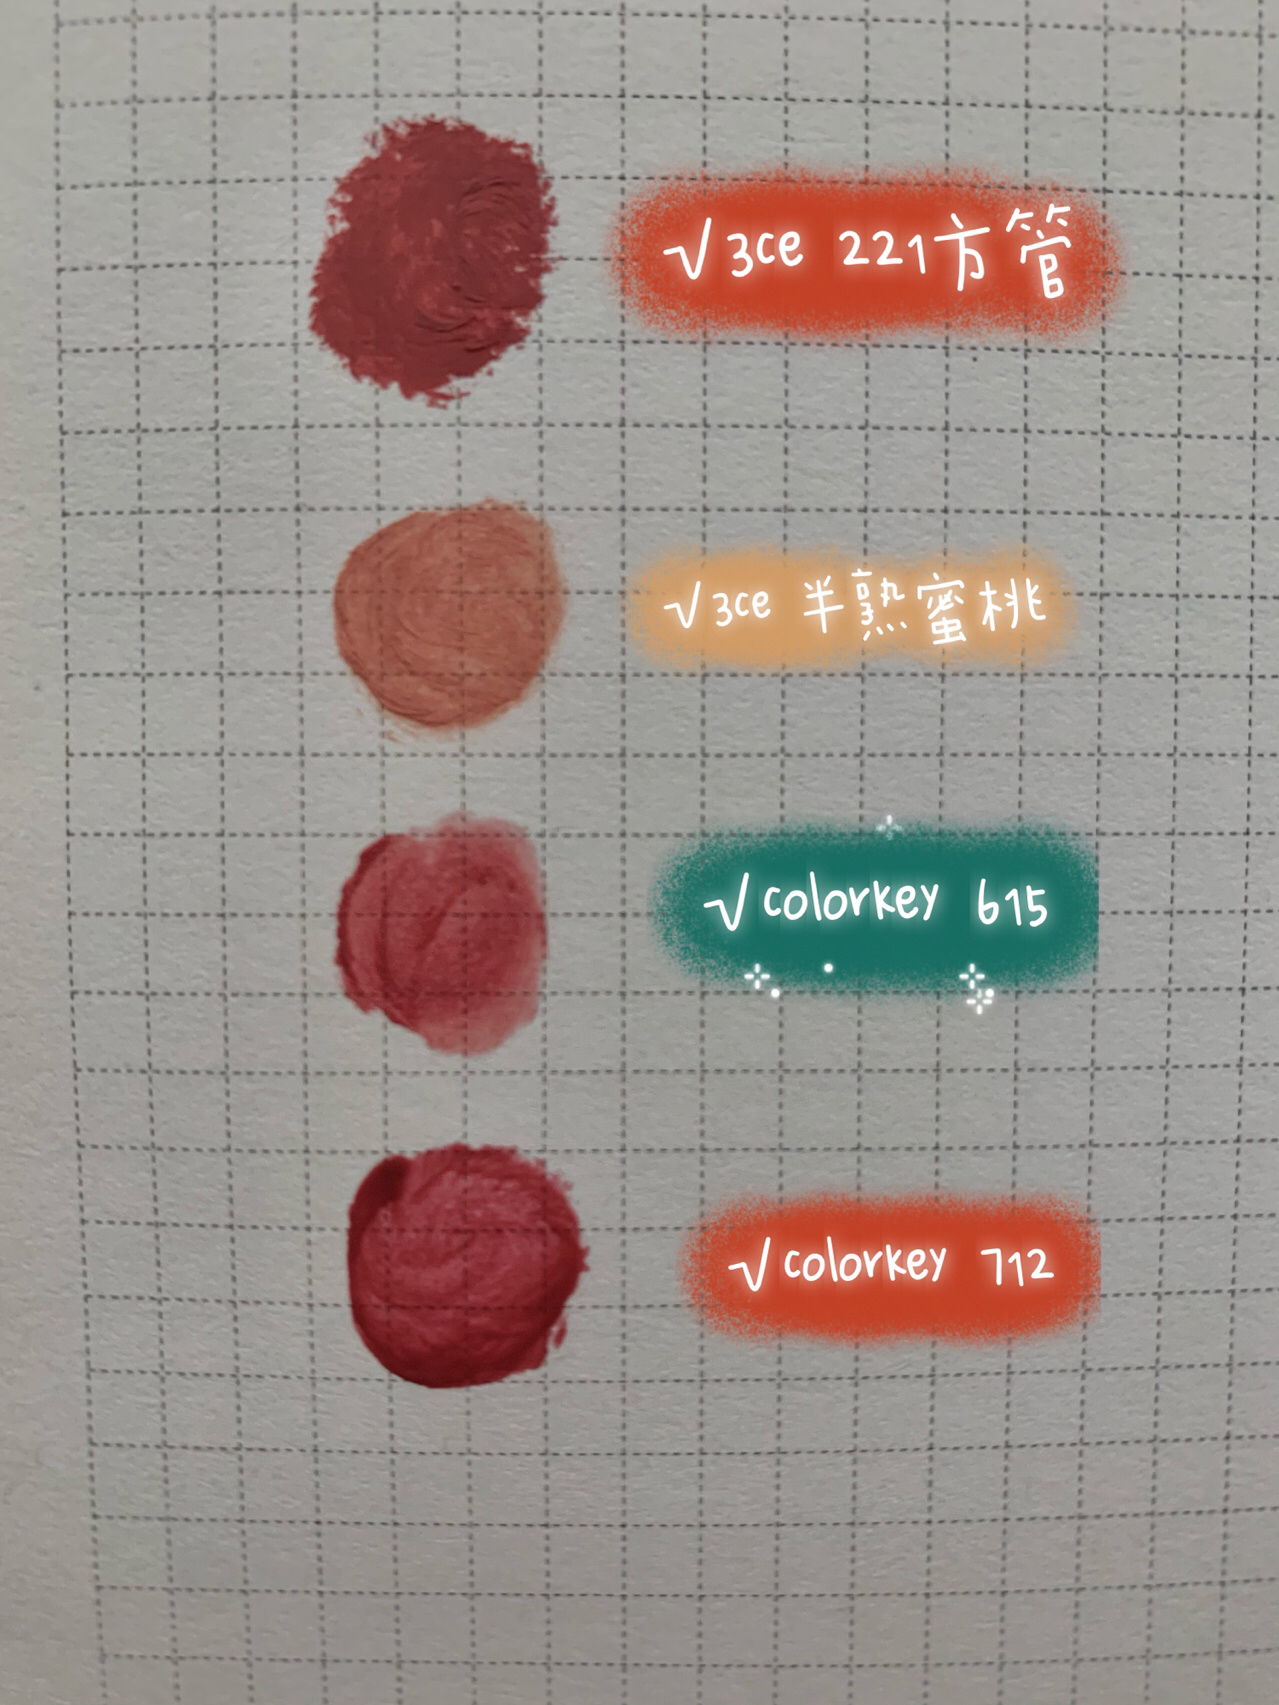 √3ce 221方管
√3ce 半熟蜜桃
√colorkey 615
√colorkey 712